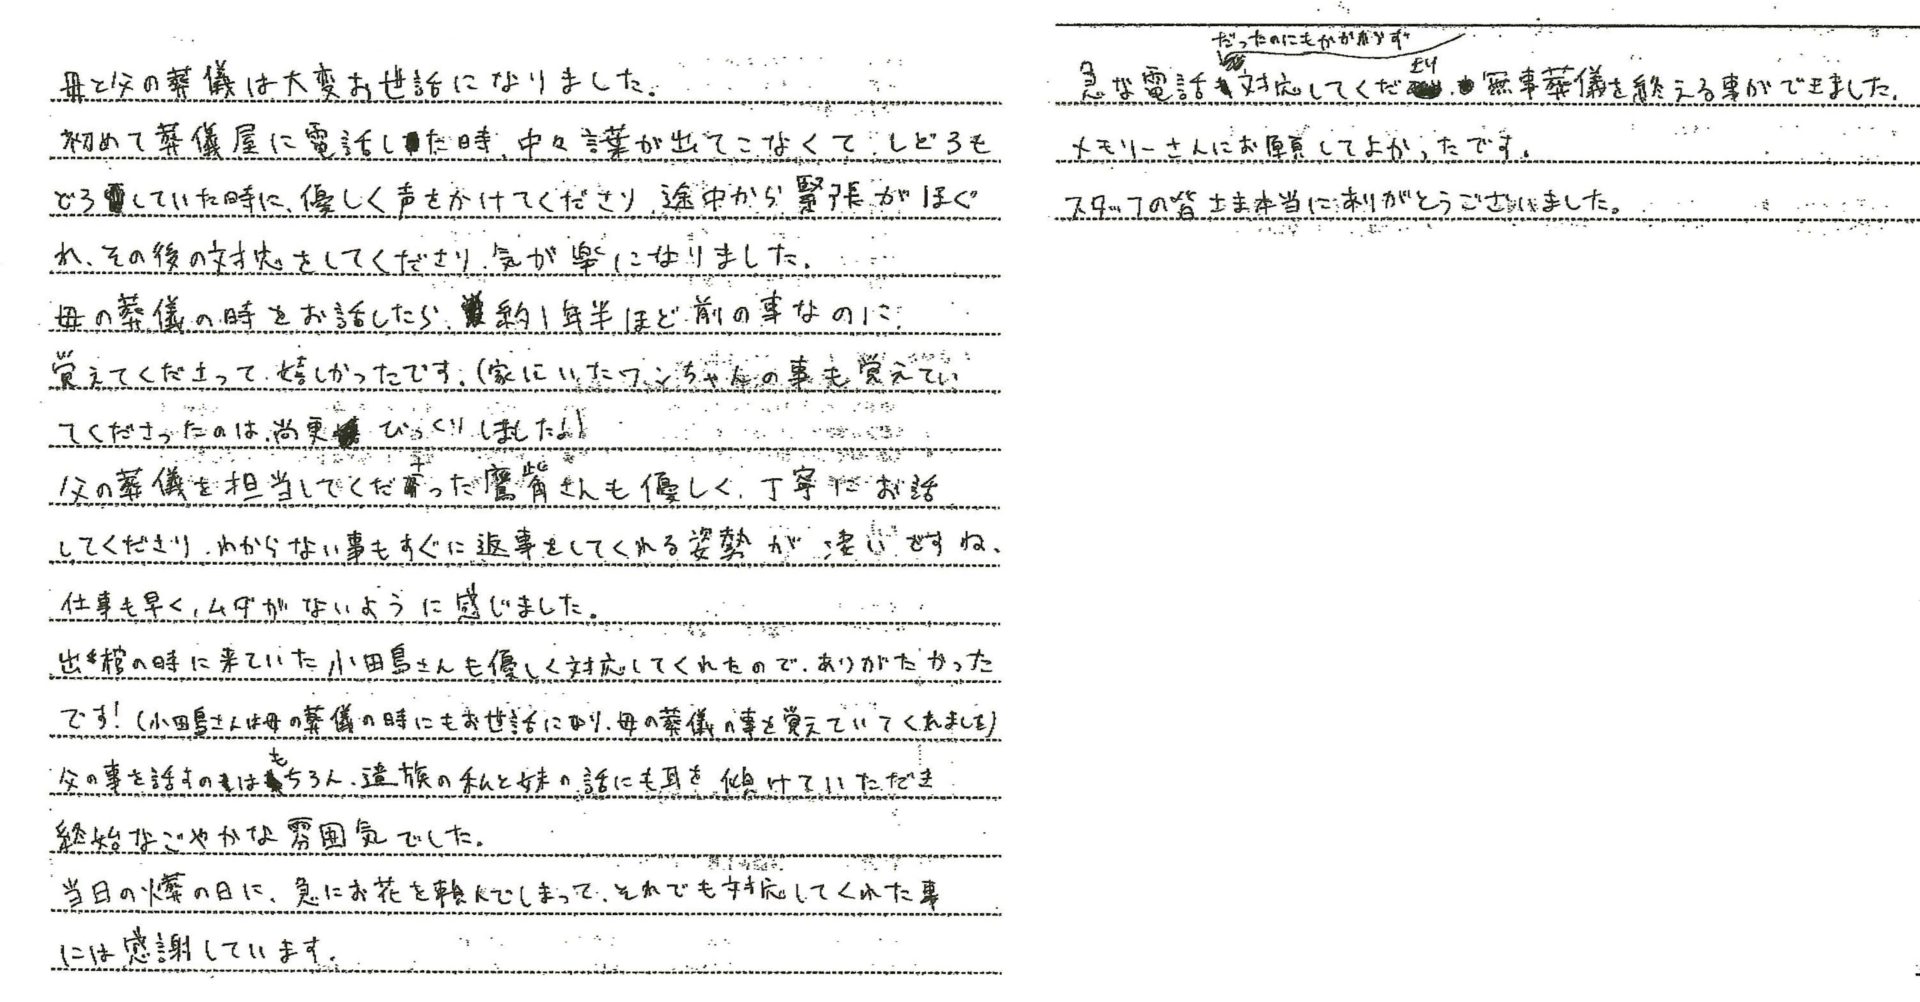 母と父の葬儀は大変お世話になりました。
初めて葬儀屋に電話した時、中々言葉が出てこなくて、しどろも
どろしていた時に、優しく声をかけてくださり、途中から緊張がほぐ
れ、その後の対応をしてくださり、気が楽になりました。
母の葬儀の時をお話したら、約1年半ほど前の事なのに、
覚えてくださって、嬉しかったです。(家にいたワンちゃんの事も覚えてい
てくださったのは、尚更びっくりしました!)
父の葬儀を担当してくださった鷹觜さんも優しく、丁寧にお話
してくださり、わからない事もすぐに返事をしてくれる姿勢が凄いですね、
仕事も早く、ムダがないように感じました。
出棺の時に来ていた小田島さんも優しく対応してくれたので、ありがたかった
です!(小田島さんは母の葬儀の時にもお世話になり、母の葬儀の事を覚えていてくれました)
父の事を話すのはもちろん、遺族の私と妹の話にも耳を傾けていただき
終始なごやかな雰囲気でした。
当日の火葬の日に、急にお花を頼んでしまって、それでも対応してくれた事
には感謝しています。
急な電話だったのにもかかわらず対応してくださり、無事葬儀を終える事ができました。
メモリーさんにお願してよかったです。
スタッフの皆さま本当にありがとうございました。